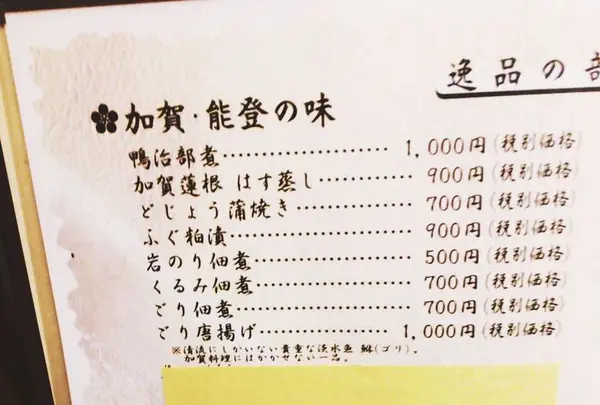 逸品の部
加賀・能登の味
鴨治部煮‥‥‥‥‥‥‥‥‥1,000円(税別価格)
加賀蓮根 はす蒸し‥‥‥‥‥900円(税別価格)
どじょう蒲焼き‥‥‥‥‥‥700円(税別価格)
ふぐ粕漬‥‥‥‥‥‥‥‥‥900円(税別価格)
岩のり佃煮‥‥‥‥‥‥‥‥500円(税別価格)
くるみ佃煮‥‥‥‥‥‥‥‥700円(税別価格)
ごり佃煮‥‥‥‥‥‥‥‥‥700円(税別価格)
ごり唐揚げ‥‥‥‥‥‥‥‥1,000円(税別価格)
※清流にしかいない貴重な淡水魚 鮴(ゴリ)。
加賀料理にはかかせない一品。